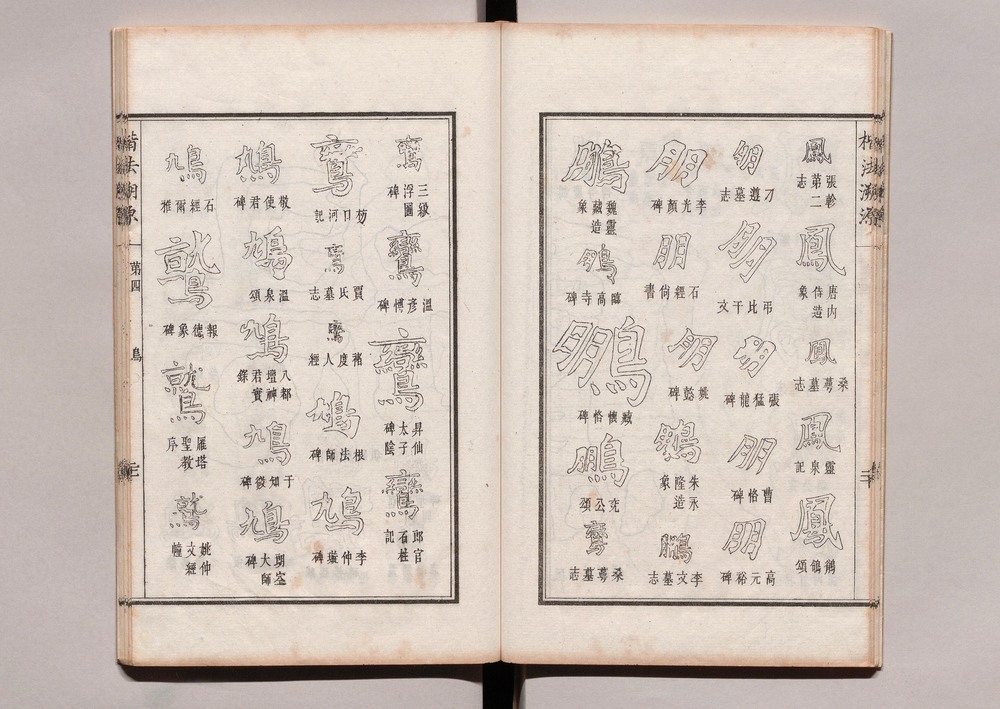 楷法溯源
鳳 張軫第二志
鳳 唐内侍造象
鳳 桑萼墓志
鳳 靈泉記
鳳 鶺鴒頌
朋 刁遵墓志
朋 弔比干文
朋 張猛龍碑
朋 曹恪碑
朋 高元裕碑
朋 李光顏碑
朋 石經尚書
朋 姚懿碑
鵬 朱永隆造象
鵬 李文墓志
鵬 魏靈藏造象
鵬 高寺碑
鵬 臧懷恪碑
鵬 兖公頌
鸞 桑萼墓志
鸞 三級浮圖碑
鸞 溫彥博碑
鸞 昇仙太子碑陰
鸞 郎官石柱記
鸞 枋口河記
鸞 賈氏墓志
鸞 褚度人經
鳩 根法師碑
鳩 李仲璇碑
鳩 敬使君碑
鳩 溫泉頌
鳩 八都壇神君實錄
鳩 于知微碑
鳩 大師碑
鳩 石經爾雅
鷲 報德象碑
鷲 雁塔聖教序
鷲 姚仲文經幢
第四 鳥